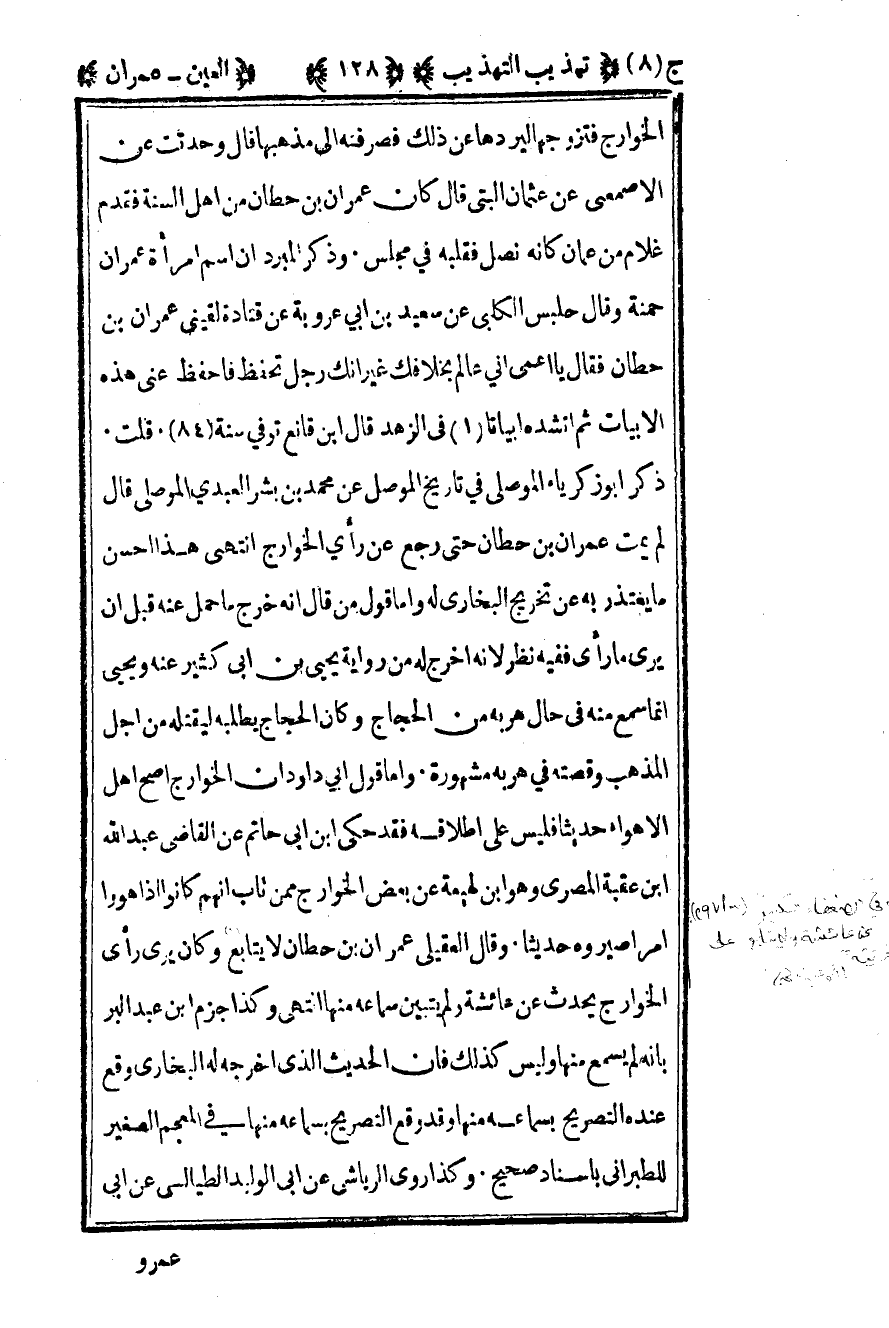 ج (٨) تهذيب التهذيب ١٢٨ العين - عمران
الخوارج فتزوجها ليردها عن ذلك فصرفته الى مذهبها قال وحدثت عن
الاصمعى عن عثمان البتى قال كان عمران بن حطان من اهل السنة فقدم
غلام من عمان كانه نصل فقلبه في مجلس ٠ وذكر المبرد ان اسم امرأة عمران
حمنة وقال حلبس الكلبى عن سعيد بن ابي عروبة عن قتادة لقيني عمران بن
حطان فقال يا اعمى اني عالم بخلافك غير انك رجل تحفظ فاحفظ عنى هذه
الابيات ثم انشده ابياتا (١) فى الزهد قال ابن قانع توفي سنة (٨٤) ٠ قلت ٠
ذكر ابو زكرياء الموصلى في تاريخ الموصل عن محمد بن بشر العبدي الموصلى قال
لم يمت عمران بن حطان حتى رجع عن رأي الخوارج انتهى هذا احسن
ما يعتذر به عن تخريج البخارى له واما قول من قال انه خرج ما حمل عنه قبل ان
يرى ما رأى ففيه نظر لانه اخرج له من رواية يحيى بن ابى كثير عنه ويحيى
انما سمع منه فى حال هربه من الحجاج وكان الحجاج يطلبه ليقتله من اجل
المذهب وقصته في هربه مشهورة ٠ واما قول ابي داود ان الخوارج اصح اهل
الاهواء حديثا فليس على اطلاقه فقد حكى ابن ابى حاتم عن القاضى عبد الله
ابن عقبة المصرى وهو ابن لهيعة عن بعض الخوارج ممن تاب انهم كانوا اذا هووا
امرا صيروه حديثا ٠ وقال العقيلى عمران بن حطان لا يتابع وكان يرى رأى
الخوارج يحدث عن عائشة ولم يتبين سماعه منها انتهى وكذا جزم ابن عبد البر
بانه لم يسمع منها وليس كذلك فان الحديث الذى اخرجه له البخارى وقع
عنده التصريح بسماعه منها وقد وقع التصريح بسماعه منها في المعجم الصغير
للطبرانى باسناد صحيح ٠ وكذا روى الرياشى عن ابى الوليد الطيالسى عن ابى
عمرو